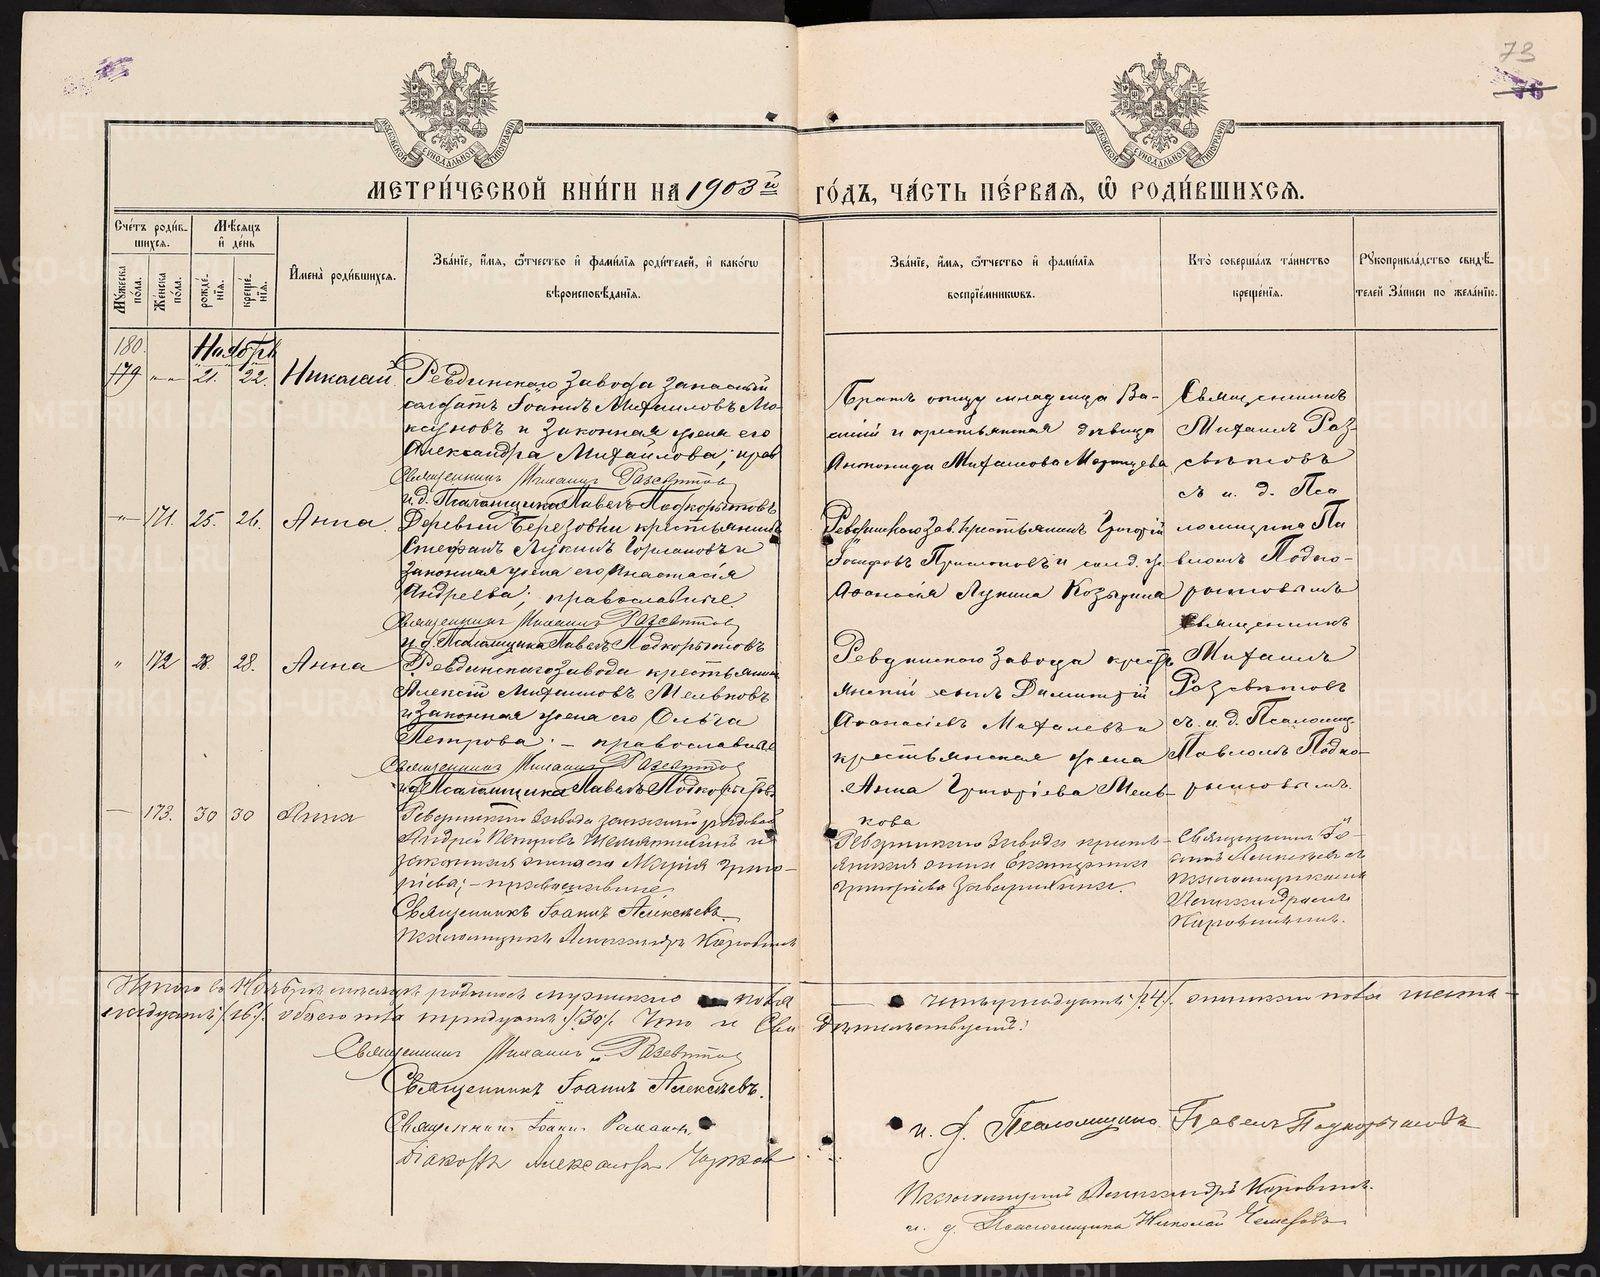 73
МОСКОВСКОЙ СѴНОДАЛЬНОЙ ТИПОГРАФІИ
МОСКОВСКОЙ СѴНОДАЛЬНОЙ ТИПОГРАФІИ
МЕТРИ́ЧЕСКОЙ КНИ́ГИ НА 1903й ГО́ДЪ, ЧА́СТЬ ПЕ́РВАЯ, Ѡ РОДИ́ВШИХСЯ.
Сче́тъ роди́в-
шихся.
Мѣ́сяцъ
и де́нь
Му́жеска
по́ла.
Же́нска
по́ла.
рожде́-
нїя.
креще́-
нїя.
Имена̀ роди́вшихся.
Зва́нїе, и́мя, ѻ́тчество и фами́лїя роди́телей, и како́гѡ
вѣроисповѣ́данїя.
Зва́нїе, и́мя, ѻ́тчество и фами́лїя
воспрїе́мниковъ.
Кто̀ соверша́лъ та́инство
креще́нїя.
Рꙋкоприкла́дство свидѣ́-
телей за́писи по жела́нїю.
Ноябрь
180.
179 21. 22. Николай
Ревдинскаго завода запасный
солдатъ Іоаннъ Михаиловъ Мо-
куновъ и законная жена его
Александра Михайлова; прав
Священникъ Михаилъ Разсвѣтовъ
и.д. Псаломщика Павелъ Подкорытовъ
Братъ отцу младенца Ва-
силій и крестьянская дѣвица
Антонида Михаилова
Священникъ
Михаилъ Раз-
свѣтовъ
съ и. д. Пса
ломщика Па
вломъ Подко-
рытовымъ
171. 25. 26. Анна
Деревни Березовки крестьянинъ
Стефанъ Лукинъ и
законная жена его Анастасія
Андреева; православные.
Священникъ Михаилъ Разсвѣтовъ
и.д. Псаломщика Павелъ Подкорытовъ
Ревдинскаго зав. крестьянинъ Григорій
Іосифовъ и солд. ж.
Аѳанасія Лукина Козырина
172 28. 28. Анна
Ревдинскаго завода крестьянинъ
Алексѣй Михаиловъ Мельковъ
и законная жена его Ольга
Петрова; – православные
Священникъ Михаилъ Разсвѣтовъ
и.д. Псаломщика Павелъ Подкорытовъ
Ревдинскаго завода кресть
янскій сынъ Димитрій
Аѳанасіевъ Михалевъ и
крестьянская жена
Анна Григоріева Мель-
кова
Священникъ
Михаилъ
Разсвѣтовъ
съ и. д. Псаломщ.
Павломъ Подко-
рытовымъ.
173. 30 30 Анна
Ревдинскаго завода запасный рядовой
Андрей Петровъ и
законная жена его Марія Григо-
ріева; – православные
Священникъ Іоаннъ Алексѣевъ
Псаломщикъ Александръ
Ревдинскаго завода кресть-
янская жена Екатерина
Григоріева
Священникъ Іо-
аннъ Алексѣевъ съ
псаломщикомъ
Александромъ
Итого въ Ноябрѣ мѣсяцѣ родилось мужескаго пола четырнадцать /14/, женскаго пола шест-
надцать /16/. обоего пола тридцать /30/. Что и свидѣтельствуемъ:
Священникъ Михаилъ Разсвѣтовъ
Священникъ Іоаннъ Алексѣевъ.
Священникъ Іоаннъ
Діаконъ Александръ
и. д. Псаломщика Павелъ Подкорытовъ
Псаломщикъ Александръ
и. д. Псаломщика Николай